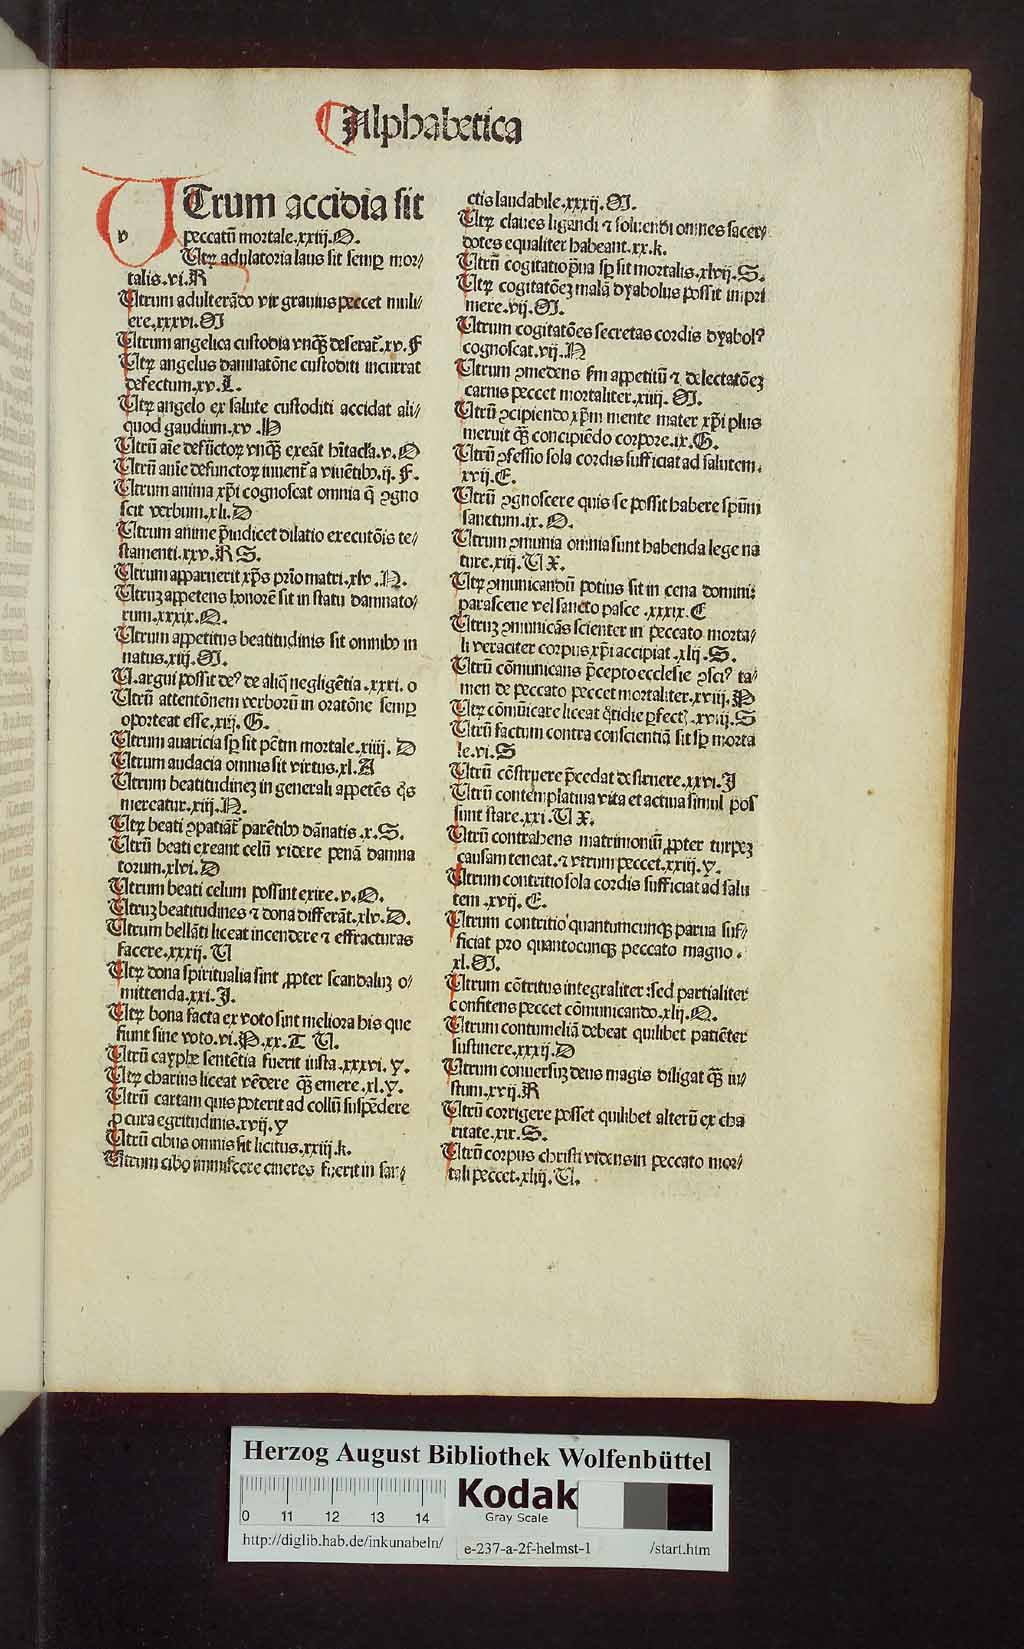 Alphabetica
UTrum accidia sit
v
peccatū mortale.xxiij.O.
Utrꝝ adulatoria laus sit semꝑ mor⸗
talis.vi.R
Utrum adulterādo vir grauius peccet muli⸗
ere.xxxvi.M
Utrum angelica custodia vnqꝫ deserat᷑.xv.F
Utrꝝ angelus damnatōne custoditi incurrat
defectum.xv.L.
Utrꝝ angelo ex salute custoditi accidat ali⸗
quod gaudium.xv.H
Utrū aīe defūctoꝝ vnqꝫ exeāt
Utrū anīe defunctoꝝ iuuent᷑ a viuētibꝰ.ij.F.
Utrum anima xp̄i cognoscat omnia q̄ ꝯgno
scit verbum.xli.D
Utrum anime p̄iudicet dilatio executōis te⸗
stamenti.xxv.R S.
Utrum apparuerit xp̄s prīo matri.xlv.N.
Utruꝫ appetens honorē sit in statu damnato⸗
rum.xxxix.O.
Utrum appetitus beatitudinis sit omnibꝰ in
natus.xiij.M.
U.argui possit deꝰ de aliq̄ negligētia.xxxi.o
Utrū attentōnem verborū in oratōne semꝑ
oporteat esse.xiij.G.
Utrum auaricia sꝑ sit pctm̄ mortale.xiiij.D
Utrum audacia omnis sit virtus.xl.A
Utrum beatitudineꝫ in generali appetēs
mereatur.xiij.N.
Utrꝝ beati ꝯpatiāt᷑ parētibꝰ dānatis.x.S.
Utrū beati exeant celū videre penā damna
torum.xlvi.D
Utrum beati celum possint exire.v.O.
Utruꝫ beatitudines ⁊ dona differāt.xlv.D.
Utrum bellāti liceat incendere ⁊ effracturas
facere.xxxij.U
Utrꝝ dona spiritualia sint ꝓpter scandaluꝫ o⸗
mittenda.xxi.J.
Utrꝝ bona facta ex voto sint meliora his que
fiunt sine voto.vi.P.xx.T U.
Utrū cayphe sentētia fuerit iusta.xxxvi.Y.
Utrꝝ charius liceat vēdere qꝫ̄ emere.xl.Y.
Utrū cartam quis poterit ad collū suspēdere
ꝓ cura egritudinis.xvij.Y
Utrū cibus omnis sit licitus.xxiij.k.
Utrum cibo immiscere cineres fuerit in san⸗
ctis laudabile.xxxij.M.
Utrꝝ claues ligandi ⁊ soluendi omnes sacer⸗
dotes equaliter habeant.xx.k.
Utrū cogitatio p̄ua sꝑ sit mortalis.xlvij.S.
Utrꝝ cogitatōeꝫ malā dyabolus possit impri
mere.vij.M.
Utrum cogitatōes secretas cordis dyabolꝰ
cognoscat.vij.N
Utrum ꝯmedens ẜm appetitū ⁊ delectatōeꝫ
carnis peccet mortaliter.xiiij.M.
Utrū ꝯcipiendo xp̄m mente mater xp̄i plus
meruit qꝫ̄ concipiēdo corpore.ix.G.
Utrū ꝯfessio sola cordis sufficiat ad salutem.
xvij.E.
Utrū ꝯgnoscere quis se possit habere spūm
sanctum.ix.O.
Utrum ꝯmunia omnia sunt habenda lege na
ture.xiij.U X.
Utrꝝ ꝯmunicandū potius sit in cena domini:
parasceue vel sancto pasce.xxxix.E
Utruꝫ ꝯmunicās scienter in peccato morta⸗
li veraciter corpus xp̄i accipiat.xlij.S.
Utrū cōmunicans p̄cepto ecclesie ꝯsciꝰ ta⸗
men de peccato peccet mortaliter.xviij.P
Utrꝝ cōmūicare liceat q̄tidie ꝑfectꝰ.xviij.S
Utrū factum contra conscientiā sit sꝑ morta
le.vi.S
Utrū cōstruere p̄cedat destruere.xxvi.J
Utrū contemplatiua vita et actiua simul pos
sunt stare.xxi.U X.
Utrū contrahens matrimoniū ꝓpter turpeꝫ
causam teneat.⁊ vtrum peccet.xxiij.Y.
Utrum contritio sola cordis sufficiat ad salu
tem.xvij.E.
Utrum contritio quantumcunqꝫ parua suf⸗
ficiat pro quantocunqꝫ peccato magno.
xl.M.
Utrum cōtritus integraliter:sed partialiter
confitens peccet cōmunicando.xlij.O.
Utrum contumeliā debeat quilibet patiēter
sustinere.xxxij.D
Utrum conuersuꝫ deus magis diligat qꝫ̄ iu⸗
stum.xvij.R
Utrū corrigere posset quilibet alterū ex cha
ritate.xix.S.
Utrū corpus christi videns in peccato mor⸗
tali peccet.xliij.U.
Herzog August Bibliothek Wolfenbüttel
Kodak
Gray Scale
0 11 12 13 14
http://diglib.hab.de/inkunabeln/ e-237-a-2f-helmst-1 /start.htm